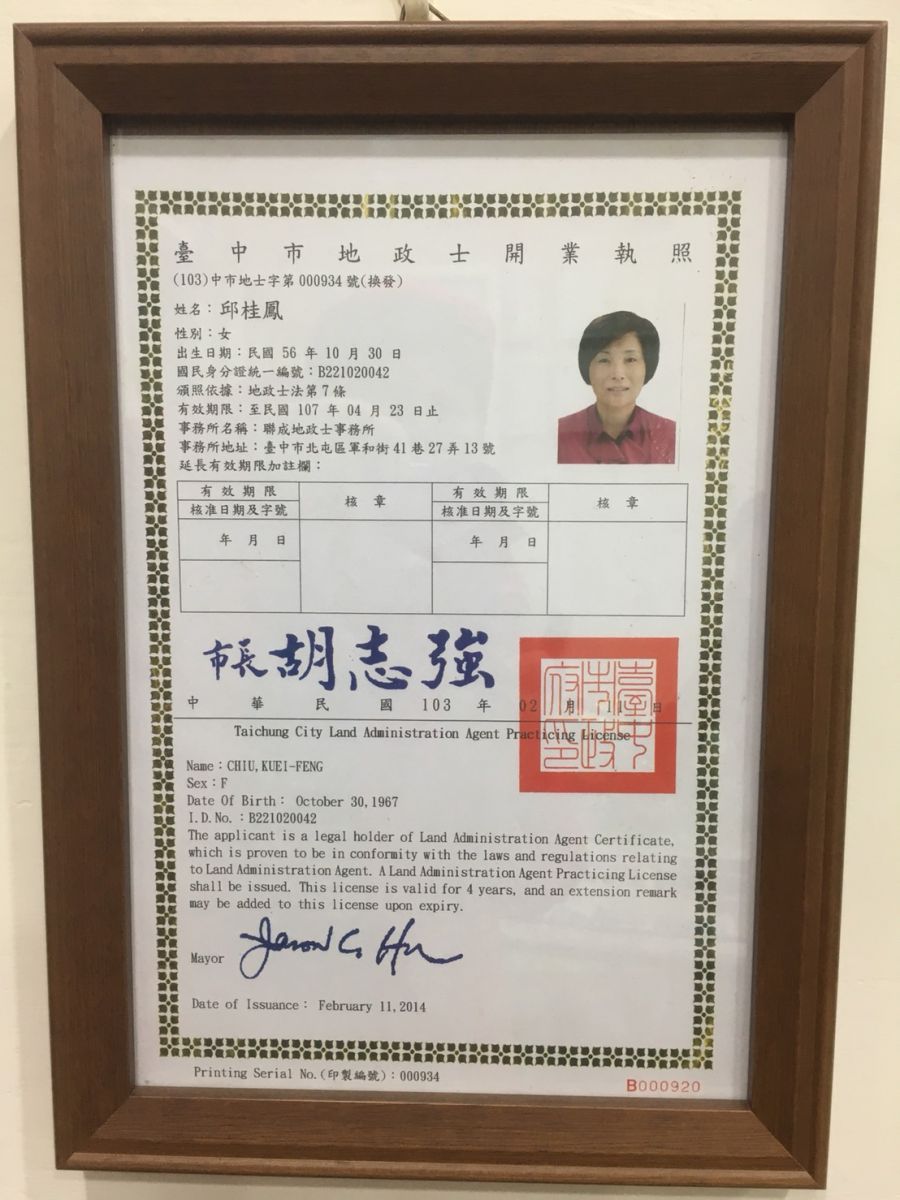 臺中市地政士開業執照
(103)中市地士字第000934號(換發)
姓名：邱桂鳳
性別：女
出生日期：民國 56 年 10 月 30 日
國民身分證統一編號：B221020042
頒照依據：地政士法第7條
有效期限：至民國 107 年 04 月 23 日止
事務所名稱：聯成地政士事務所
事務所地址：臺中市北屯區軍和街41巷27弄13號
延長有效期限加註欄：
有效期限 核章 有效期限 核章
核准日期及字號 核准日期及字號
年 月 日 年 月 日
市長 胡志強
中華民國 103 年 02 月 11 日
臺中市政府印
Taichung City Land Administration Agent Practicing License
Name：CHIU, KUEI-FENG
Sex：F
Date Of Birth： October 30,1967
I.D.No.：B221020042
The applicant is a legal holder of Land Administration Agent Certificate,
which is proven to be in conformity with the laws and regulations relating
to Land Administration Agent. A Land Administration Agent Practicing License
shall be issued. This license is valid for 4 years, and an extension remark
may be added to this license upon expiry.
Mayor Jason C. Hu
Date of Issuance： February 11,2014
Printing Serial No.(印製編號)：000934
B000920